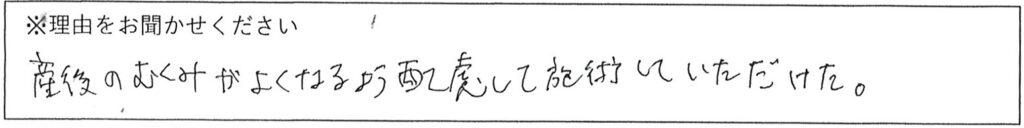 ※理由をお聞かせください
産後のむくみがよくなるよう配慮して施術していただけた。